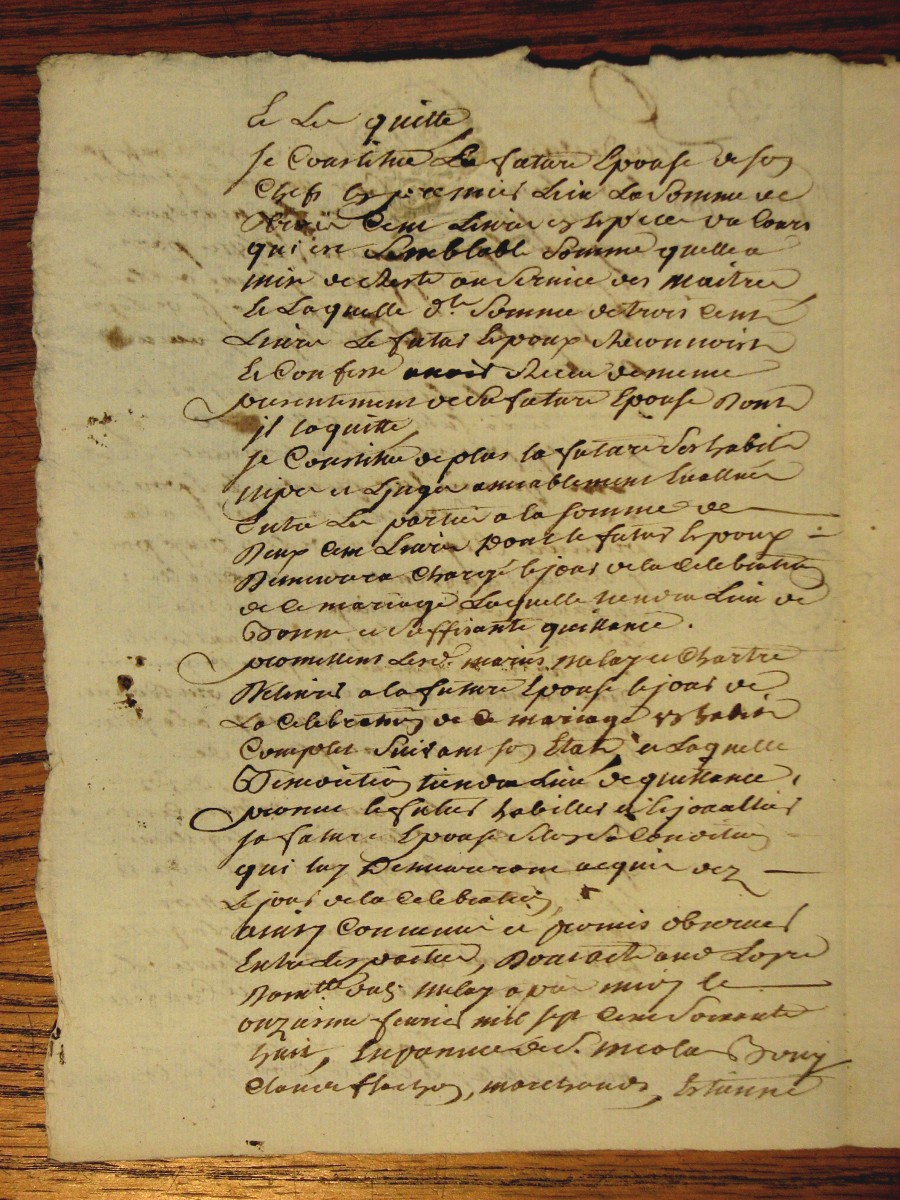 Et Les quitte
Se Constitue La future Epouse de son
Chef En premier Lieu La Somme de
trois Cent Livres En Espece du Cours
qui est Semblable Somme quelle a
mis de Reste au Service des maitres
De Laquelle d.te Somme de trois Cent
Livres Le futur Epoux Reconnoist
Et Confesse avoir Receu de meme
presentement de Sa future Epouse Dont
il la quitte
Se Constitue de plus la future Ses habits
nipes et Linges amiablement Evallués
Entre Les parties a la Somme de
Deux Cent Livres Dont le futur Epoux
Demeurera Chargé le jour de la Celebration
de Ce mariage Laquelle tiendra Lieu de
Bonne et Suffisante quittance.
promettent Lesd. mariés et Chartre
Delivrer a la future Epouse le jour de
La Celebration de Ce mariage Un habit
Complet Suivant Son Etat, et Laquelle
tiendra Lieu de quittance,
promet le futur habiller et Enjoualler
Sa future Epouse Selon Sa Condition
qui luy Demeureront acquis dez
Le jour de la Celebration,
ainsy Convenu et promis observer
Entre Les parties, Dont acte
apres midy le
onzieme fevrier mil sept Cent Soixante
huit, En presence de S. nicolas
Claude flachon, marchands, Estienne